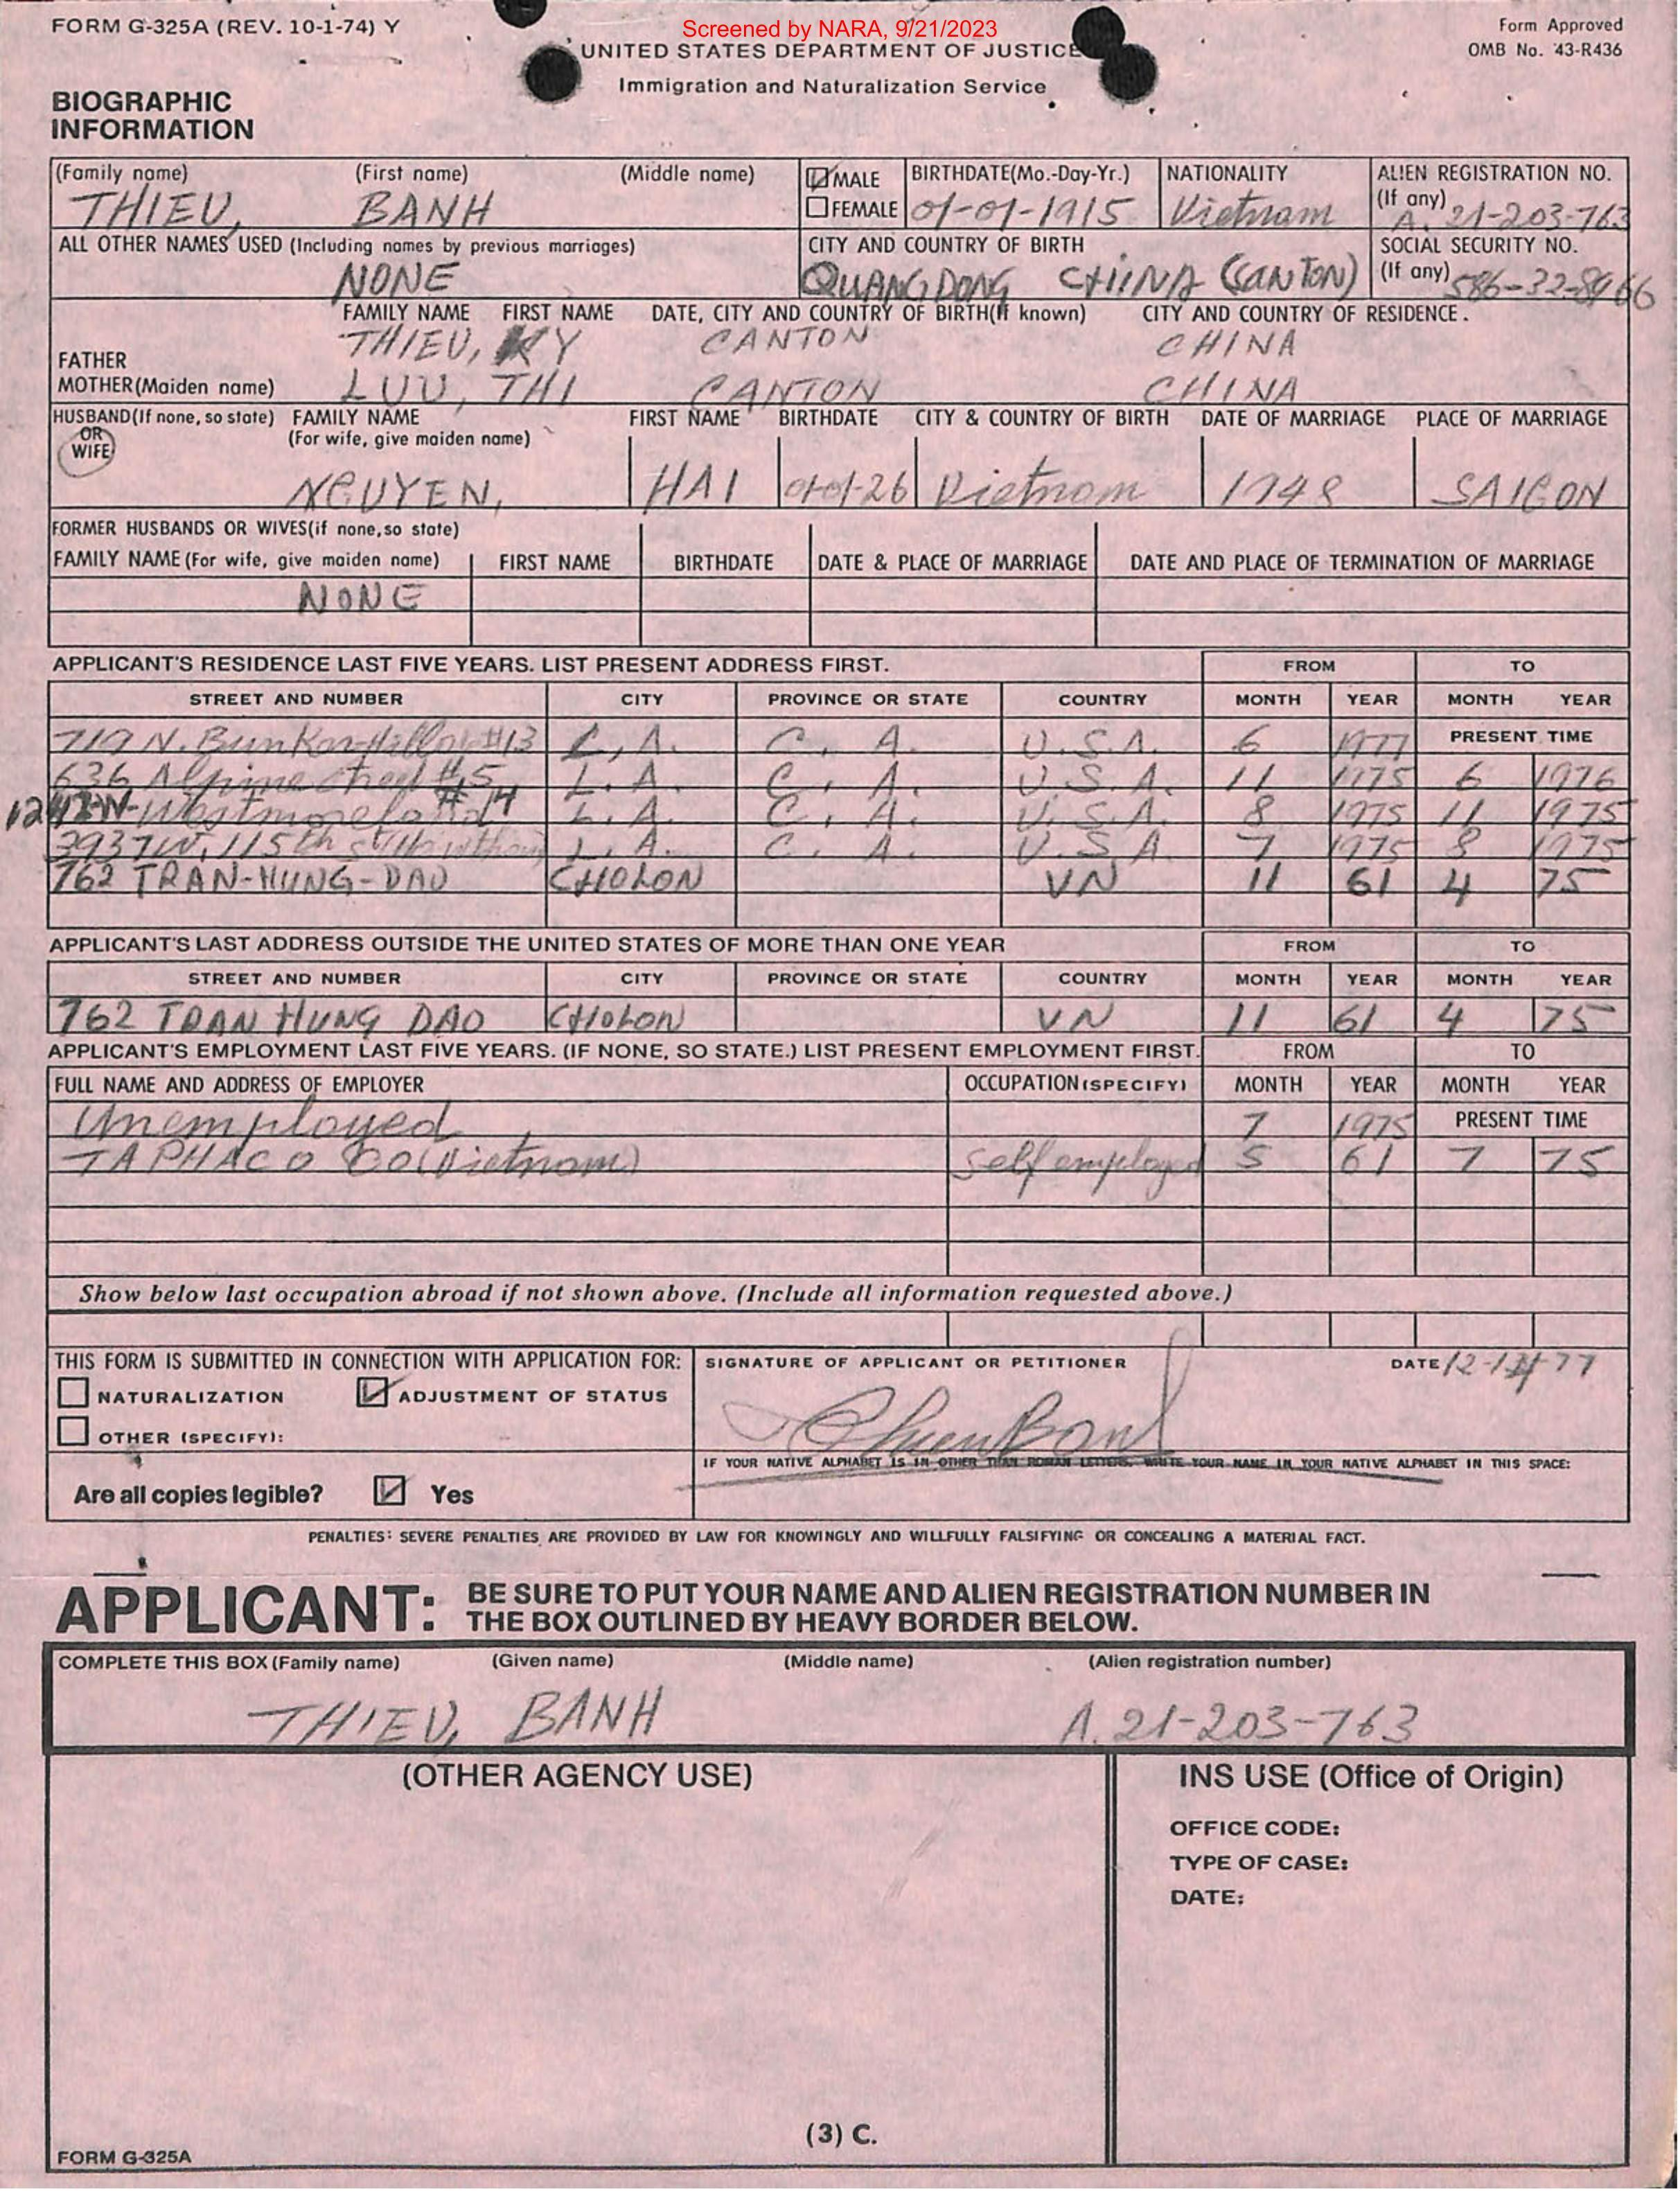 FORM G-325A (REV. 10-1-74) Y
Screened by NARA, 9/21/2023
Form Approved
OMB No. 43-R436
UNITED STATES DEPARTMENT OF JUSTICE
Immigration and Naturalization Service
BIOGRAPHIC
INFORMATION
(Family name) (First name) (Middle name) MALE BIRTHDATE(Mo.-Day-Yr.) NATIONALITY ALIEN REGISTRATION NO.
FEMALE (If any)
THIEU, BANH 01-01-1915 Vietnam A. 21-203-763
ALL OTHER NAMES USED (Including names by previous marriages) CITY AND COUNTRY OF BIRTH SOCIAL SECURITY NO.
(If any)
NONE QUANGDONG CHINA (CANTON) 586-32-8466
FAMILY NAME FIRST NAME DATE, CITY AND COUNTRY OF BIRTH(If known) CITY AND COUNTRY OF RESIDENCE.
FATHER THIEU, KY CANTON CHINA
MOTHER(Maiden name) LUU, THI CANTON CHINA
HUSBAND(If none, so state) FAMILY NAME FIRST NAME BIRTHDATE CITY & COUNTRY OF BIRTH DATE OF MARRIAGE PLACE OF MARRIAGE
OR (For wife, give maiden name)
WIFE
NGUYEN, HAI 01-01-26 Vietnam 1948 SAIGON
FORMER HUSBANDS OR WIVES(if none,so state)
FAMILY NAME (For wife, give maiden name) FIRST NAME BIRTHDATE DATE & PLACE OF MARRIAGE DATE AND PLACE OF TERMINATION OF MARRIAGE
NONE
APPLICANT'S RESIDENCE LAST FIVE YEARS. LIST PRESENT ADDRESS FIRST. FROM TO
STREET AND NUMBER CITY PROVINCE OR STATE COUNTRY MONTH YEAR MONTH YEAR
719 N. Bunker Hill #13 L, A. C, A. U.S.A. 6 1977 PRESENT TIME
636 Alpine #5 L. A. C, A. U.S.A. 11 1975 6 1976
Westmoreland #14 L. A. C, A. U.S.A. 8 1975 11 1975
3937 W. 115th St L. A. C, A. U.S.A. 7 1975 8 1975
762 TRAN-HUNG-DAO CHOLON VN 11 61 4 75
APPLICANT'S LAST ADDRESS OUTSIDE THE UNITED STATES OF MORE THAN ONE YEAR FROM TO
STREET AND NUMBER CITY PROVINCE OR STATE COUNTRY MONTH YEAR MONTH YEAR
762 TRAN HUNG DAO CHOLON VN 11 61 4 75
APPLICANT'S EMPLOYMENT LAST FIVE YEARS. (IF NONE, SO STATE.) LIST PRESENT EMPLOYMENT FIRST. FROM TO
FULL NAME AND ADDRESS OF EMPLOYER OCCUPATION (SPECIFY) MONTH YEAR MONTH YEAR
Unemployed 7 1975 PRESENT TIME
TAPHACO CO (Vietnam) Self employed 5 61 7 75
Show below last occupation abroad if not shown above. (Include all information requested above.)
THIS FORM IS SUBMITTED IN CONNECTION WITH APPLICATION FOR: SIGNATURE OF APPLICANT OR PETITIONER DATE 12-14-77
NATURALIZATION ADJUSTMENT OF STATUS
OTHER (SPECIFY):
IF YOUR NATIVE ALPHABET IS IN OTHER THAN ROMAN LETTERS, WRITE YOUR NAME IN YOUR NATIVE ALPHABET IN THIS SPACE:
Are all copies legible? Yes
PENALTIES: SEVERE PENALTIES ARE PROVIDED BY LAW FOR KNOWINGLY AND WILLFULLY FALSIFYING OR CONCEALING A MATERIAL FACT.
APPLICANT: BE SURE TO PUT YOUR NAME AND ALIEN REGISTRATION NUMBER IN
THE BOX OUTLINED BY HEAVY BORDER BELOW.
COMPLETE THIS BOX (Family name) (Given name) (Middle name) (Alien registration number)
THIEU, BANH A. 21-203-763
(OTHER AGENCY USE) INS USE (Office of Origin)
OFFICE CODE:
TYPE OF CASE:
DATE:
(3) C.
FORM G-325A